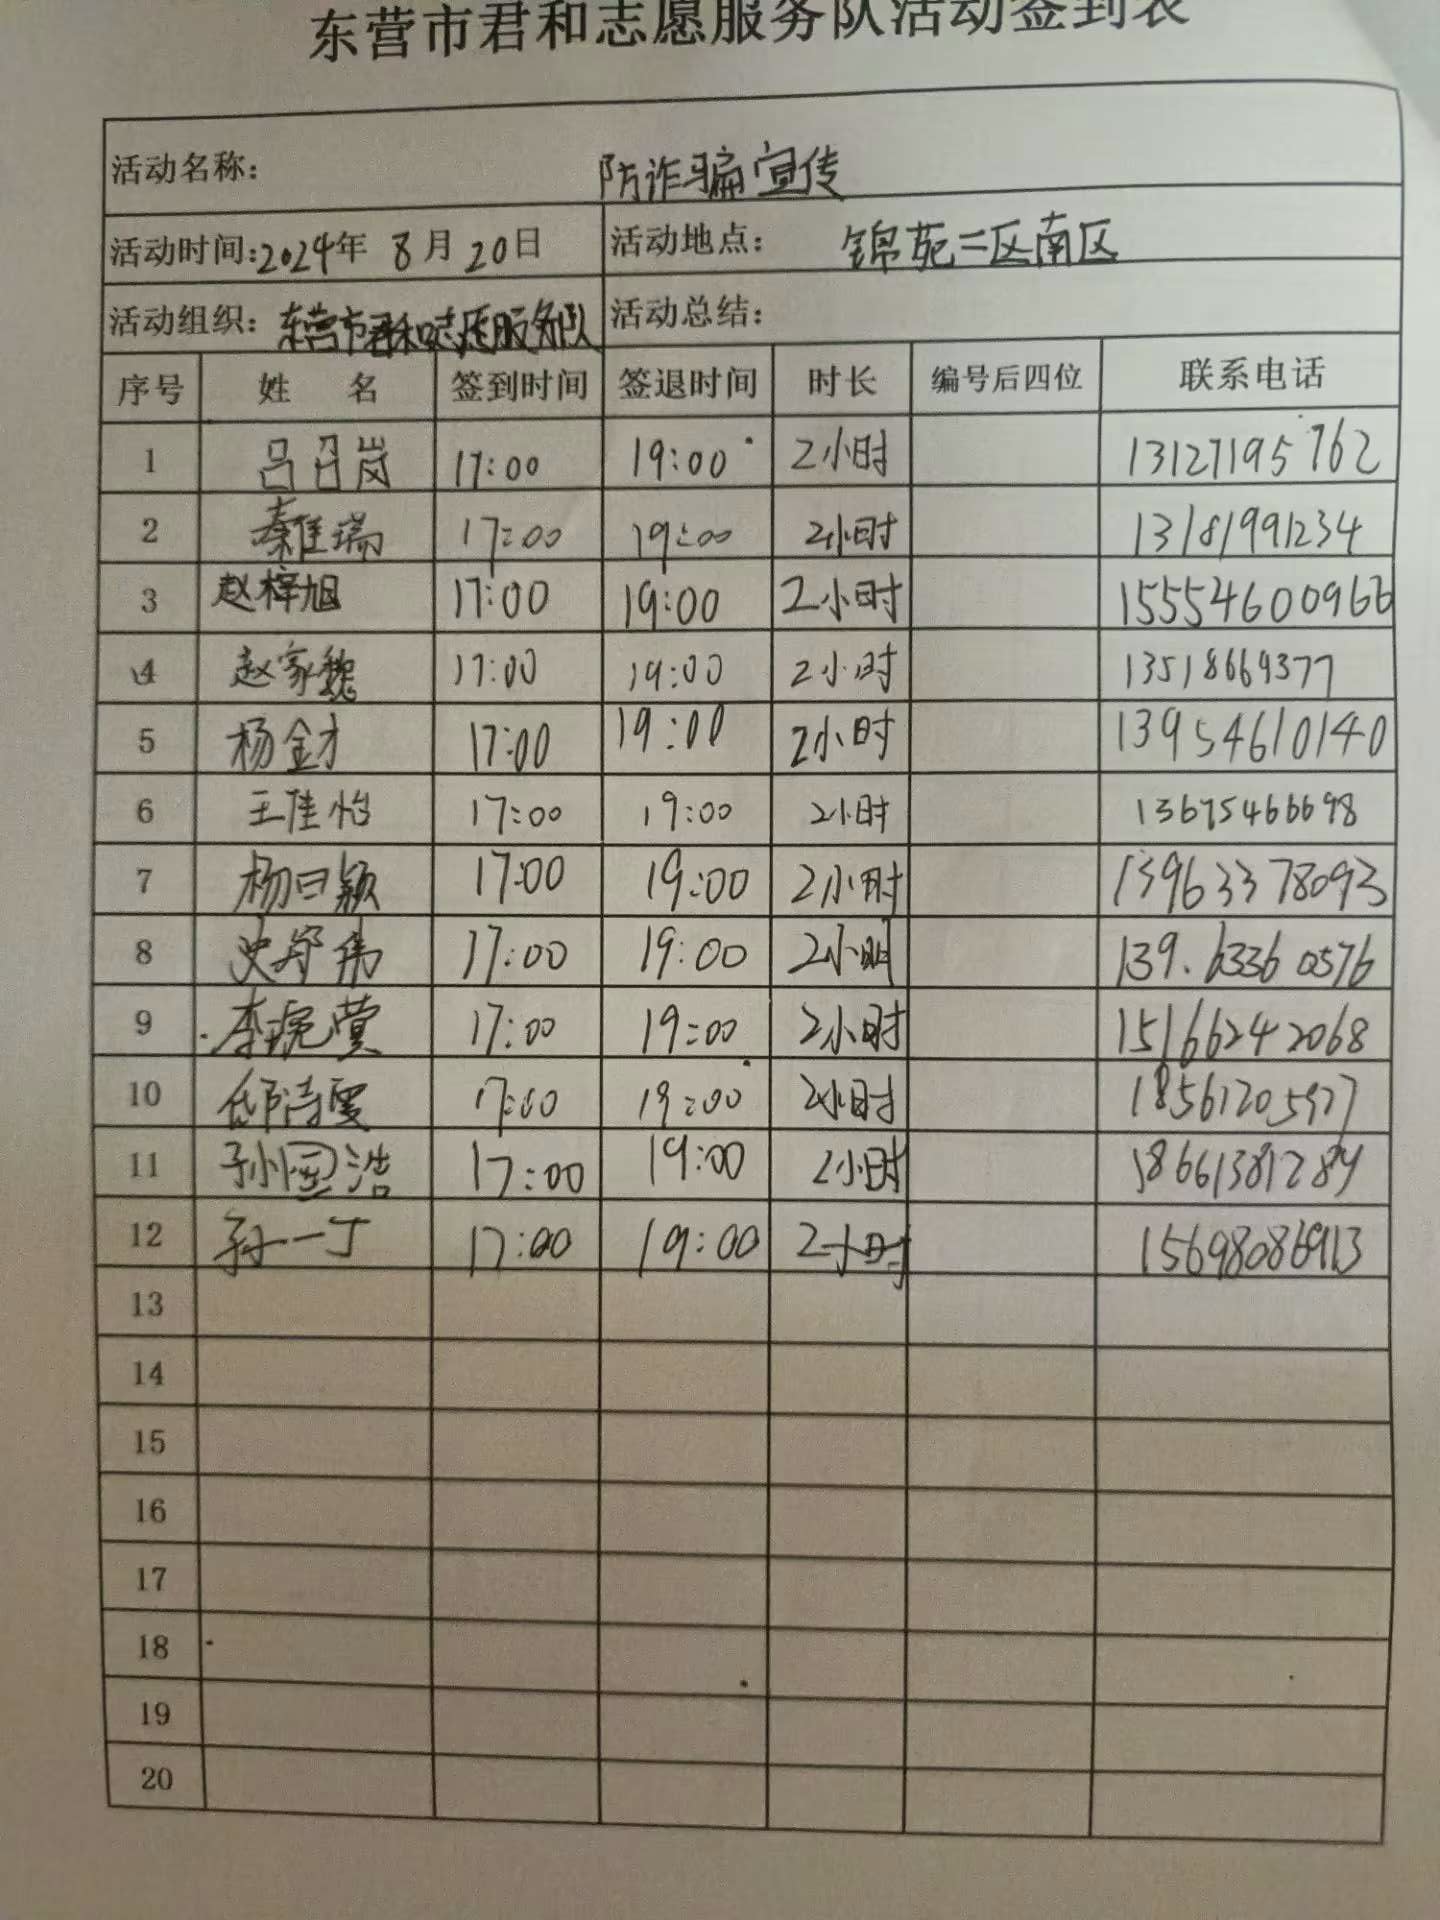 东营市君和志愿服务队活动签到表
活动名称： 防诈骗宣传
活动时间:2024年 8月20日 活动地点： 锦苑二区南区
活动组织：东营市君和志愿服务队 活动总结：
序号 姓 名 签到时间 签退时间 时长 编号后四位 联系电话
1 吕召岗 17:00 19:00 2小时 13127195762
2 秦佳瑞 17:00 19:00 2小时 13181991234
3 赵梓旭 17:00 19:00 2小时 15554600966
4 赵家魏 17:00 19:00 2小时 13518669377
5 杨金才 17:00 19:00 2小时 13954610140
6 王佳怡 17:00 19:00 2小时 13675466698
7 杨曰颖 17:00 19:00 2小时 13963378093
8 17:00 19:00 2小时 139.63360576
9 李琬莹 17:00 19:00 2小时 15166242068
10 邸清雯 17:00 19:00 2小时 18561205977
11 孙国浩 17:00 19:00 2小时 18661381289
12 孙一丁 17:00 19:00 2小时 15698086913
13
14
15
16
17
18
19
20